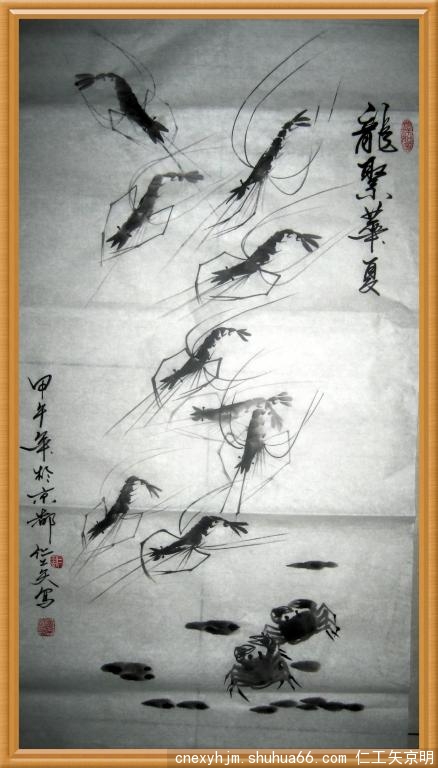 龍聚華夏
甲午年於京都
仁工矢寫
cnexyhjm.shuhua66.com 仁工矢京明